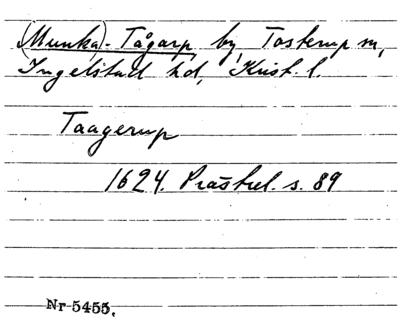 (Munka)-Tågarp by, Tosterup sn,
Ingelstad hd, Krist. l.
Taagerup
1624. Prästrel. s. 89
Nr 5455.